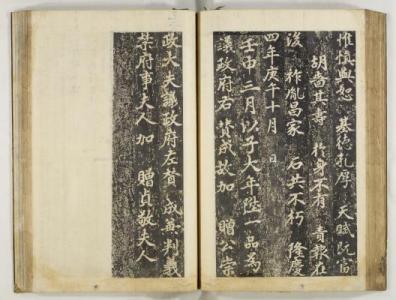 惟慎與恕 基德孔厚 天賦既富
胡嗇其壽 於身不有 責報在
後 祚胤昌家 石共不朽 隆慶
四年庚午十月 日
壬申三月以子大年階一品爲
議政府右賛成故加 贈公崇
政大夫議政府左賛成兼判義
禁府事夫人加 贈貞敬夫人